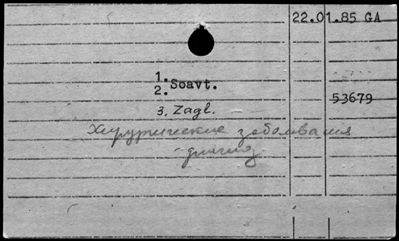 22.01.85 GA
1.
2. Soavt.
53679
3. Zagl.
Хирургические заболевания